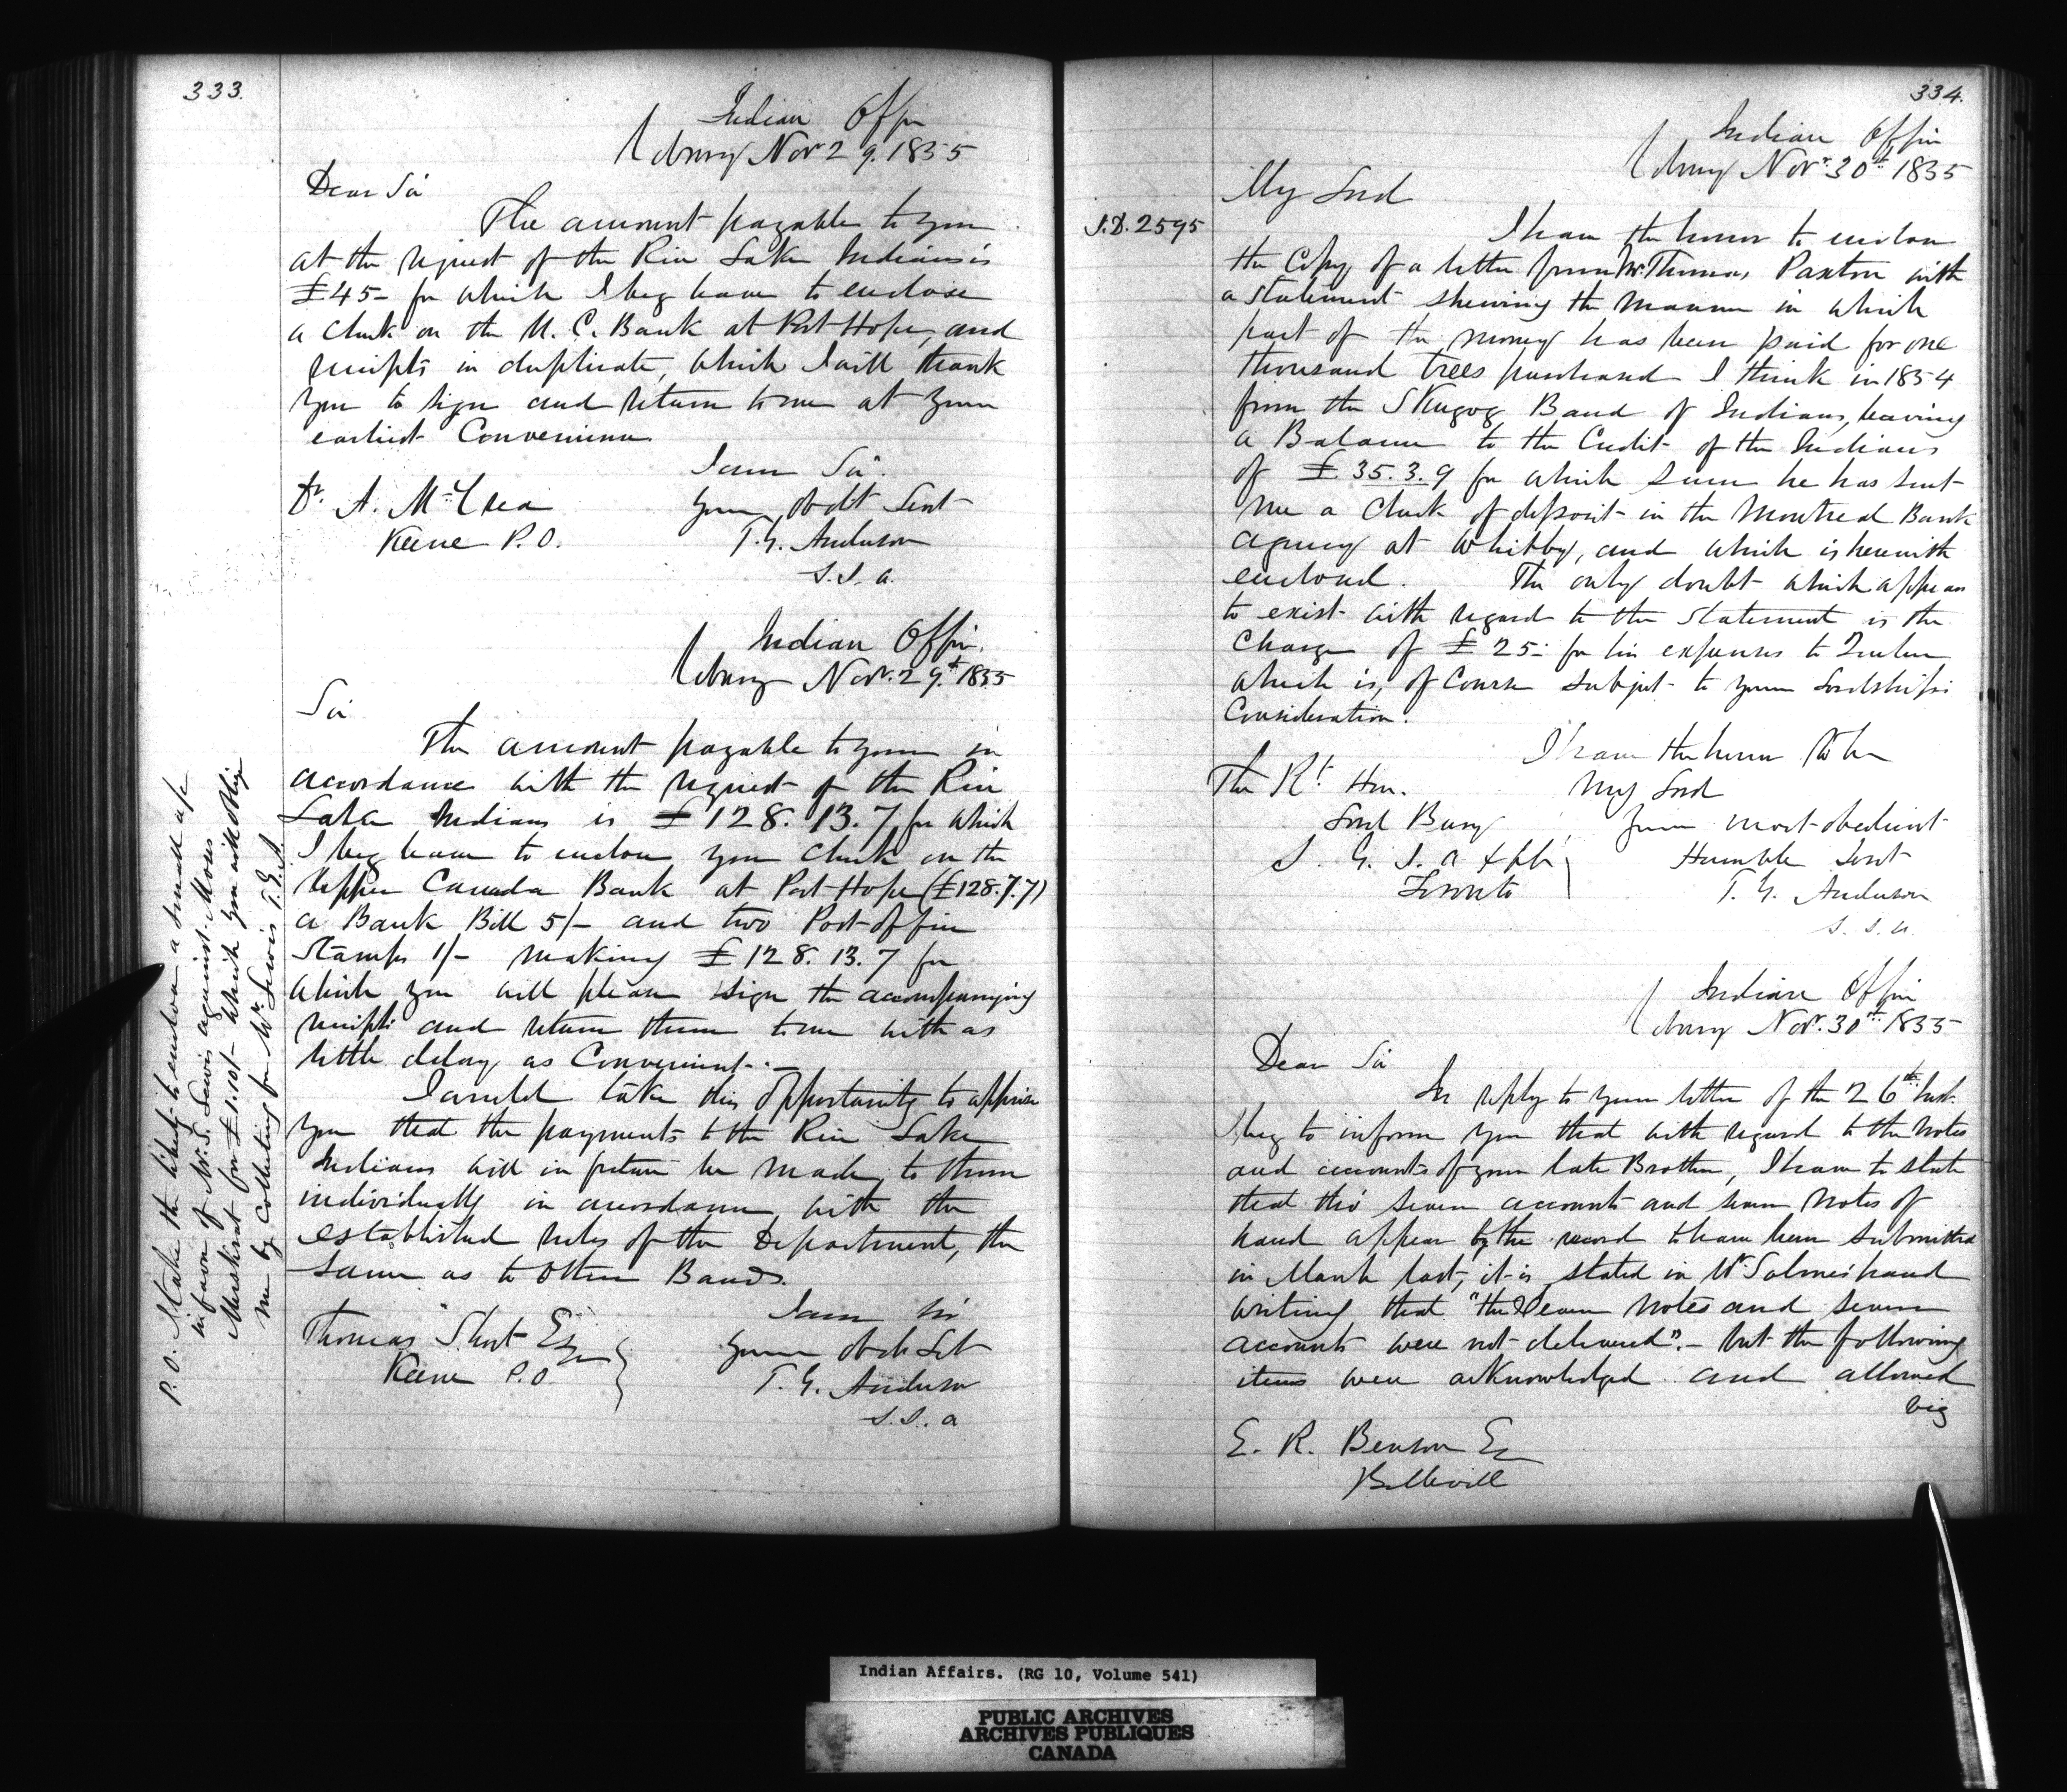 333.
Indian Office
Cobourg Nov 29. 1855
Dear Sir
The amount payable to you
at the request of the Rice Lake Indians is
£45 - for which I beg leave to enclose
a check on the U. C. Bank at Port Hope, and
receipts in duplicate, which I will thank
you to sign and return to me at your
earliest Convenience
I am Sir
Your obdt Servt
T. G. Anderson
S. I. A.
Dr. A. McCrea
Keene P.O.
Indian Office
Cobourg Novr. 29th 1855
Sir
The amount payable to you in
accordance with the request of the Rice
Lake Indians is £128. 13. 7 for which
I beg leave to enclose you check on the
Upper Canada Bank at Port Hope (£128.7.7)
a Bank Bill 5/- and two Post office
Stamps 1/- making £128. 13. 7 for
which you will please sign the accompanying
receipts and return them to me with as
little delay as Convenient. -
I would take this opportunity to apprise
you that the payments to the Rice Lake
Indians will in future be made to them
individually in accordance with the
established rules of the Department, the
same as to other Bands.
I am Sir
Your Obdt Svt
T. G. Anderson
S. I. A
Thomas Short Esq
Keene P.O
P.O. I take the liberty to enclose a small a/c
in favor of Mr. J. Lewis against Moses
Muskrat for £1.10/- which you will oblige
me by collecting for Mr. Lewis T.G.A.
334.
Indian Office
Cobourg Novr. 30th 1855
My Lord
I.D. 2595
I have the honor to enclose
the Copy of a letter from Mr. Thomas Paxton with
a statement shewing the manner in which
part of the money has been paid for one
thousand trees purchased I think in 1854
from the Skugog Band of Indians, leaving
a Balance to the Credit of the Indians
of £35. 3. 9 for which sum he has sent
me a Check of deposit in the Montreal Bank
agency at Whitby, and which is herewith
enclosed. The only doubt which appears
to exist with regard to the statement is the
Charge of £25 - for his expenses to Quebec
which is, of Course subject to your Lordship's
Consideration.
I have the honor to be
My Lord
Your most obedient
Humble Servt
T. G. Anderson
S. I. A.
The Rt. Hon.
Lord Bury
S. G. I. A &c &c
Toronto
Indian Office
Cobourg Novr. 30th 1855
Dear Sir
In reply to your letter of the 26th Inst.
I beg to inform you that with regard to the Notes
and accounts of your late Brother, I have to state
that tho' seven accounts and seven Notes of
hand appear by the record to have been submitted
in March last, it is stated in Mr. hand
writing that "the Seven Notes and seven
accounts were not delivered". - but the following
items were acknowledged and allowed
viz
E. R. Benson Esq
Belleville
Indian Affairs. (RG 10, Volume 541)
PUBLIC ARCHIVES
ARCHIVES PUBLIQUES
CANADA